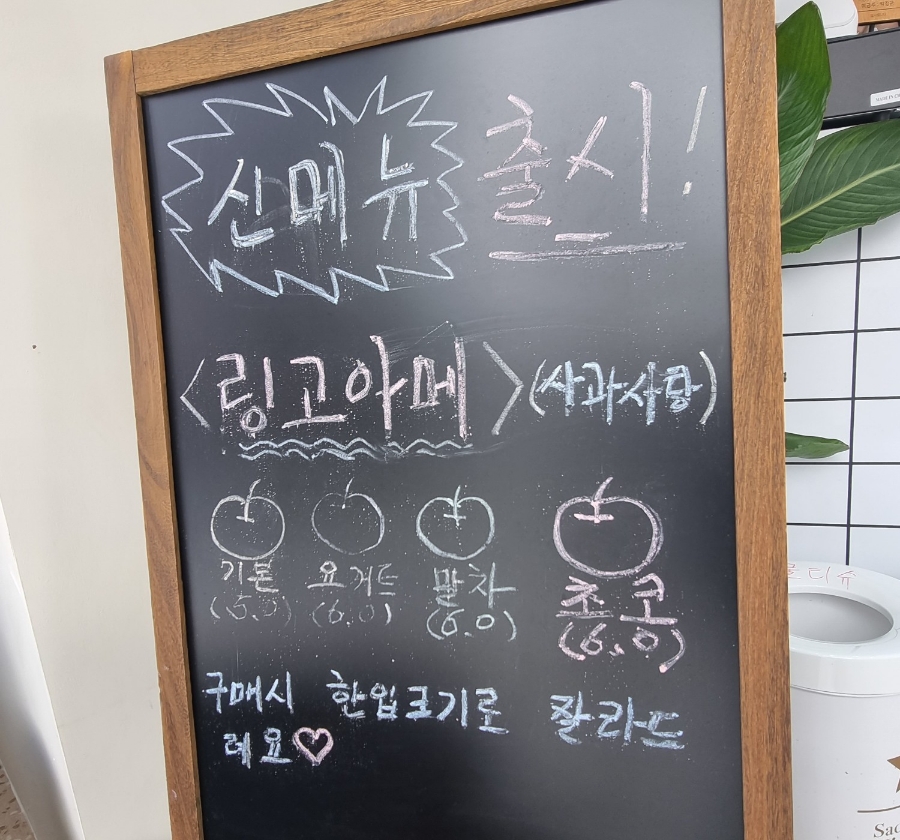 신메뉴 출시!
<링고아메> (사과사탕)
기본 요거트 말차 초코
(5.5) (6.0) (6.0) (6.0)
구매시 한입크기로 잘라드
려요♡